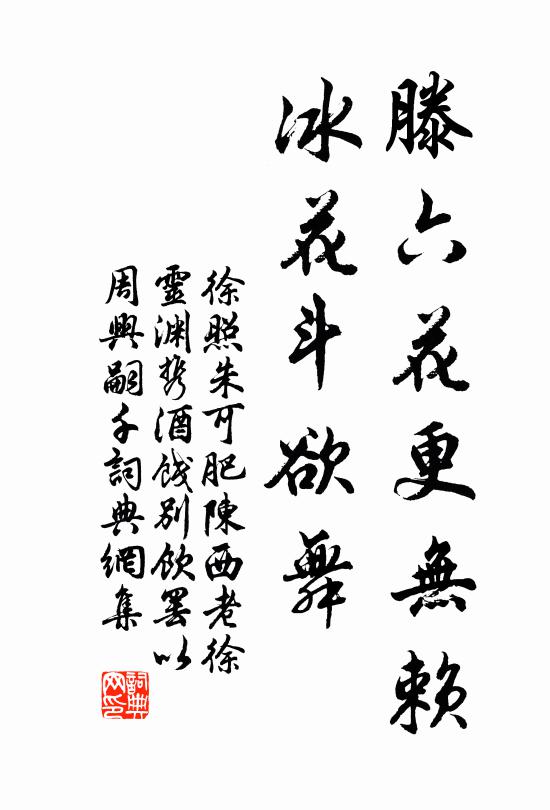 滕六花更無賴
冰花斗欲舞
徐照朱可肥陳西老徐
靈渊携酒餞別飲罢以
周興嗣千詞典網集
詞典
网印